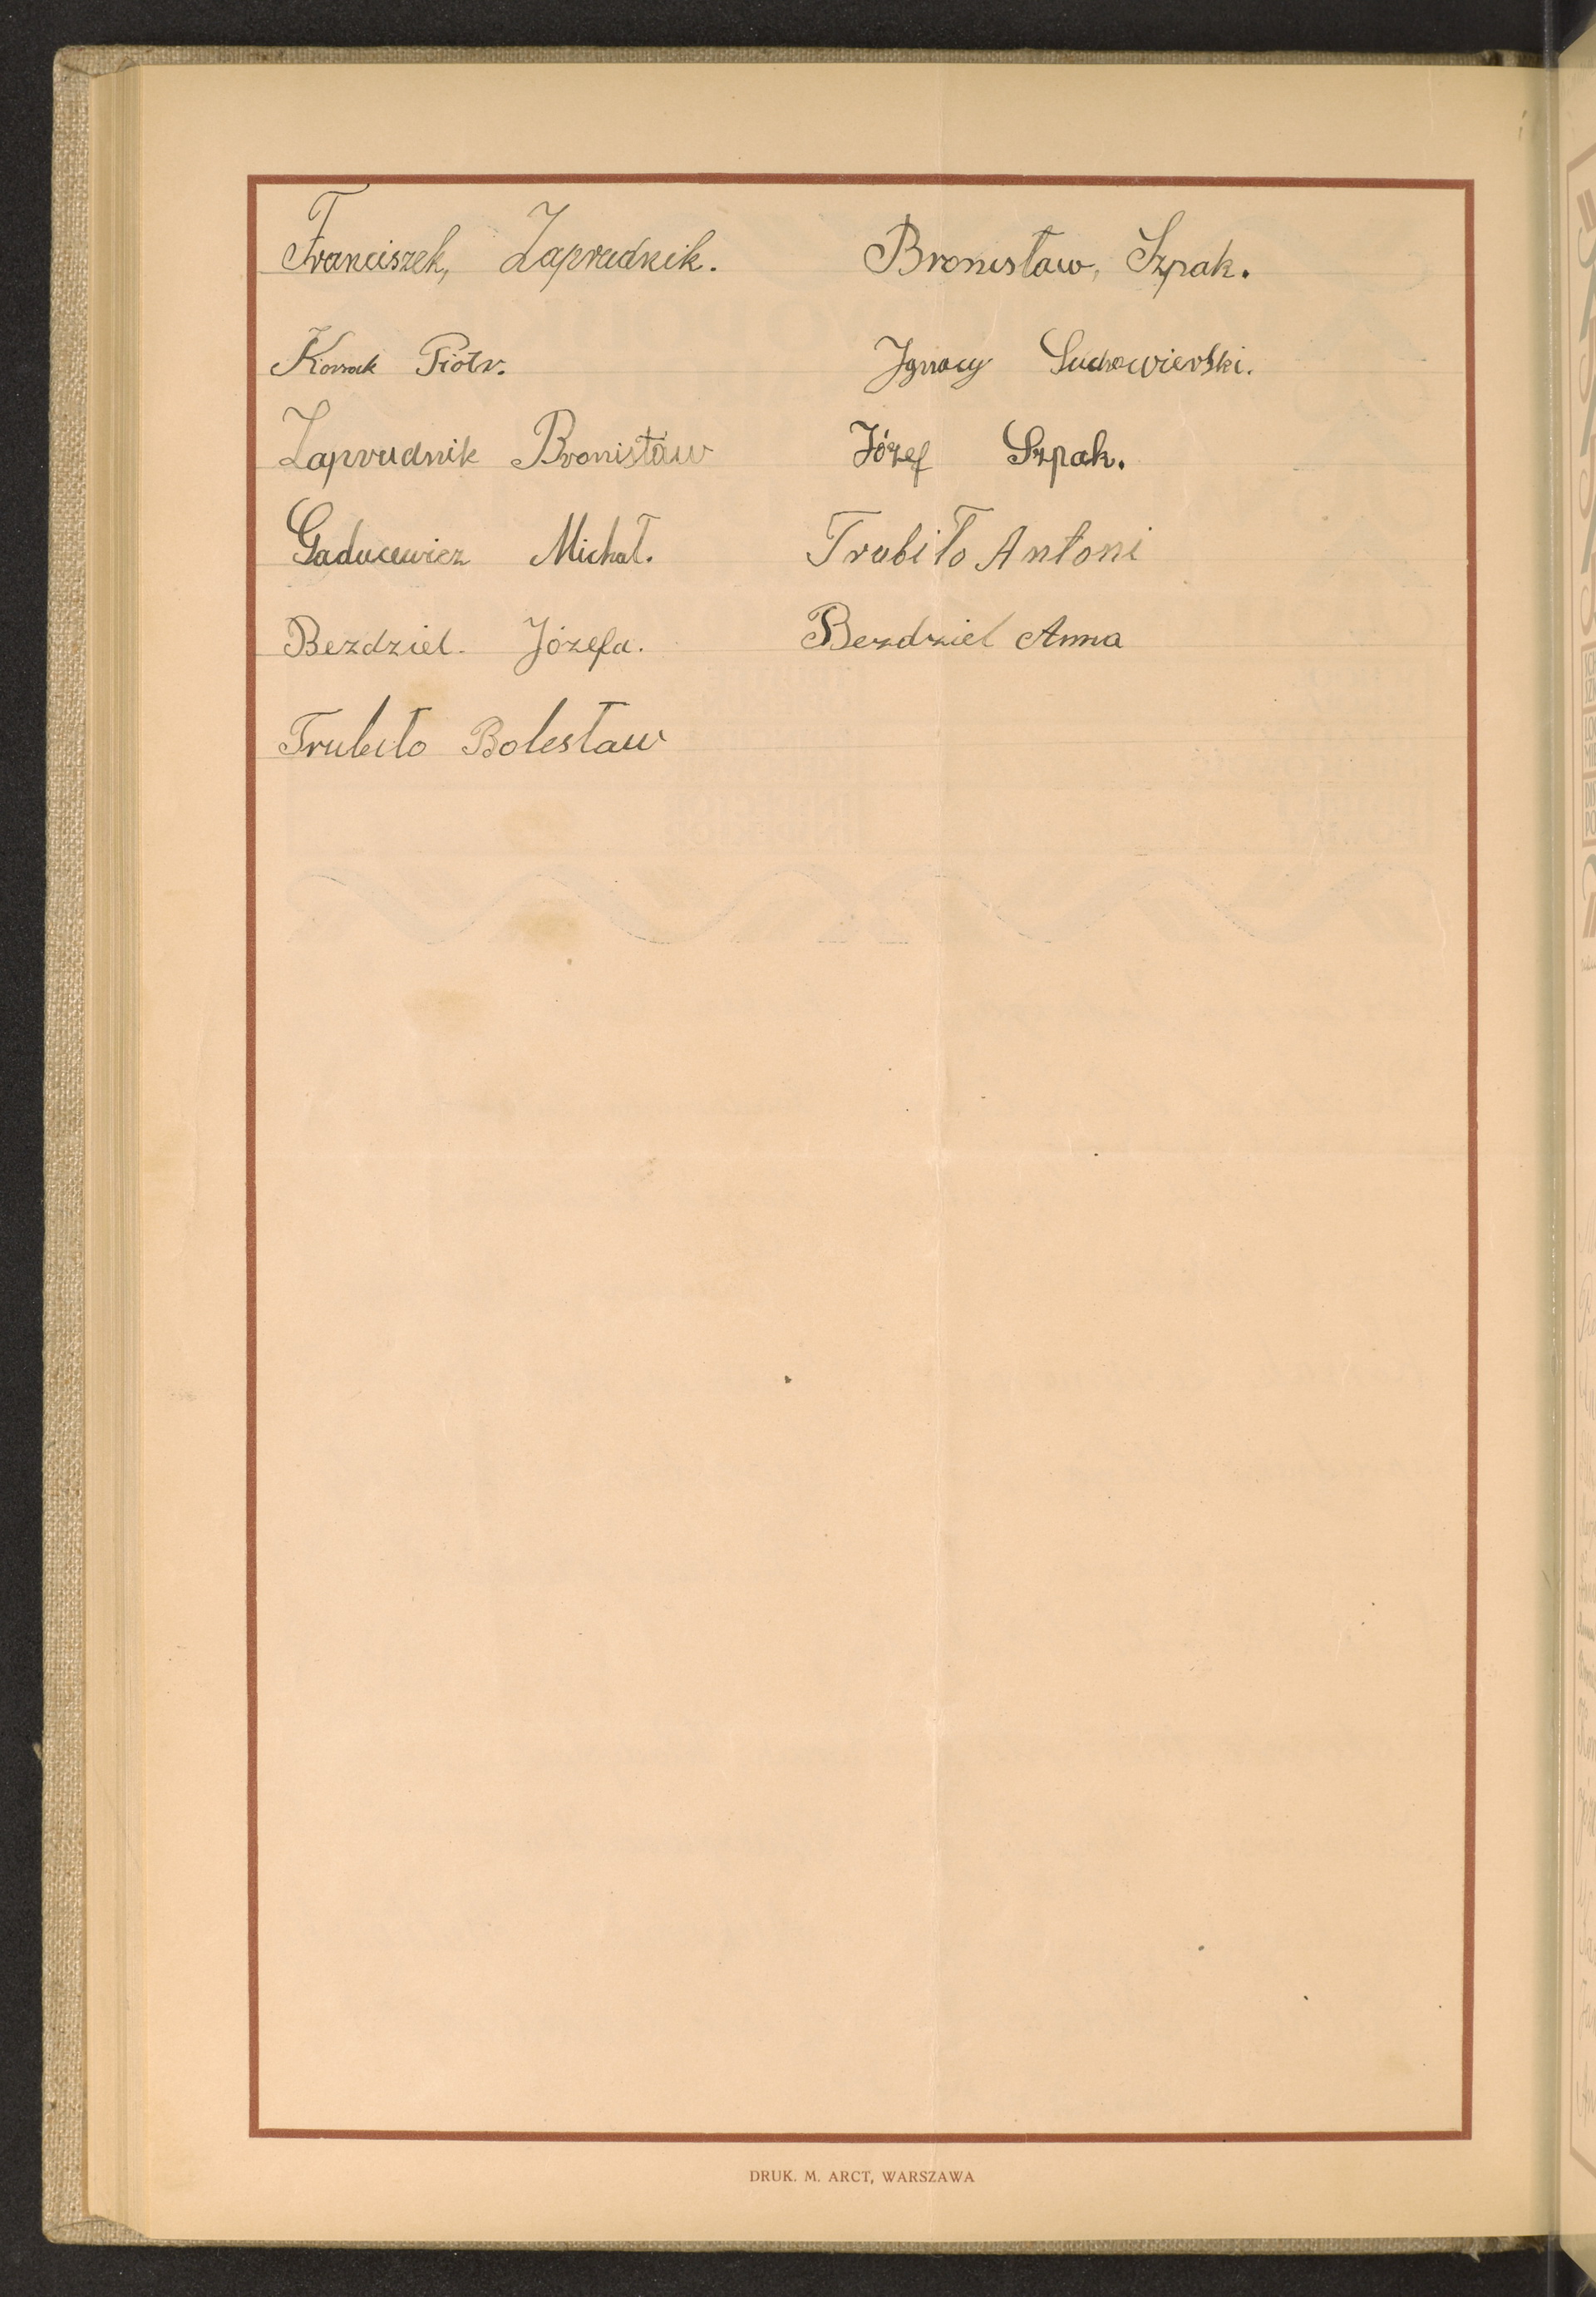 Franciszek, Zaprudnik. Bronisław, Szpak.
Piotr. Ignacy
Zaprudnik Bronisław Józef Szpak.
Michał. Trubiło Antoni
Bezdziel. Józefa. Bezdziel Anna
Trubiło Bolesław
DRUK. M. ARCT, WARSZAWA